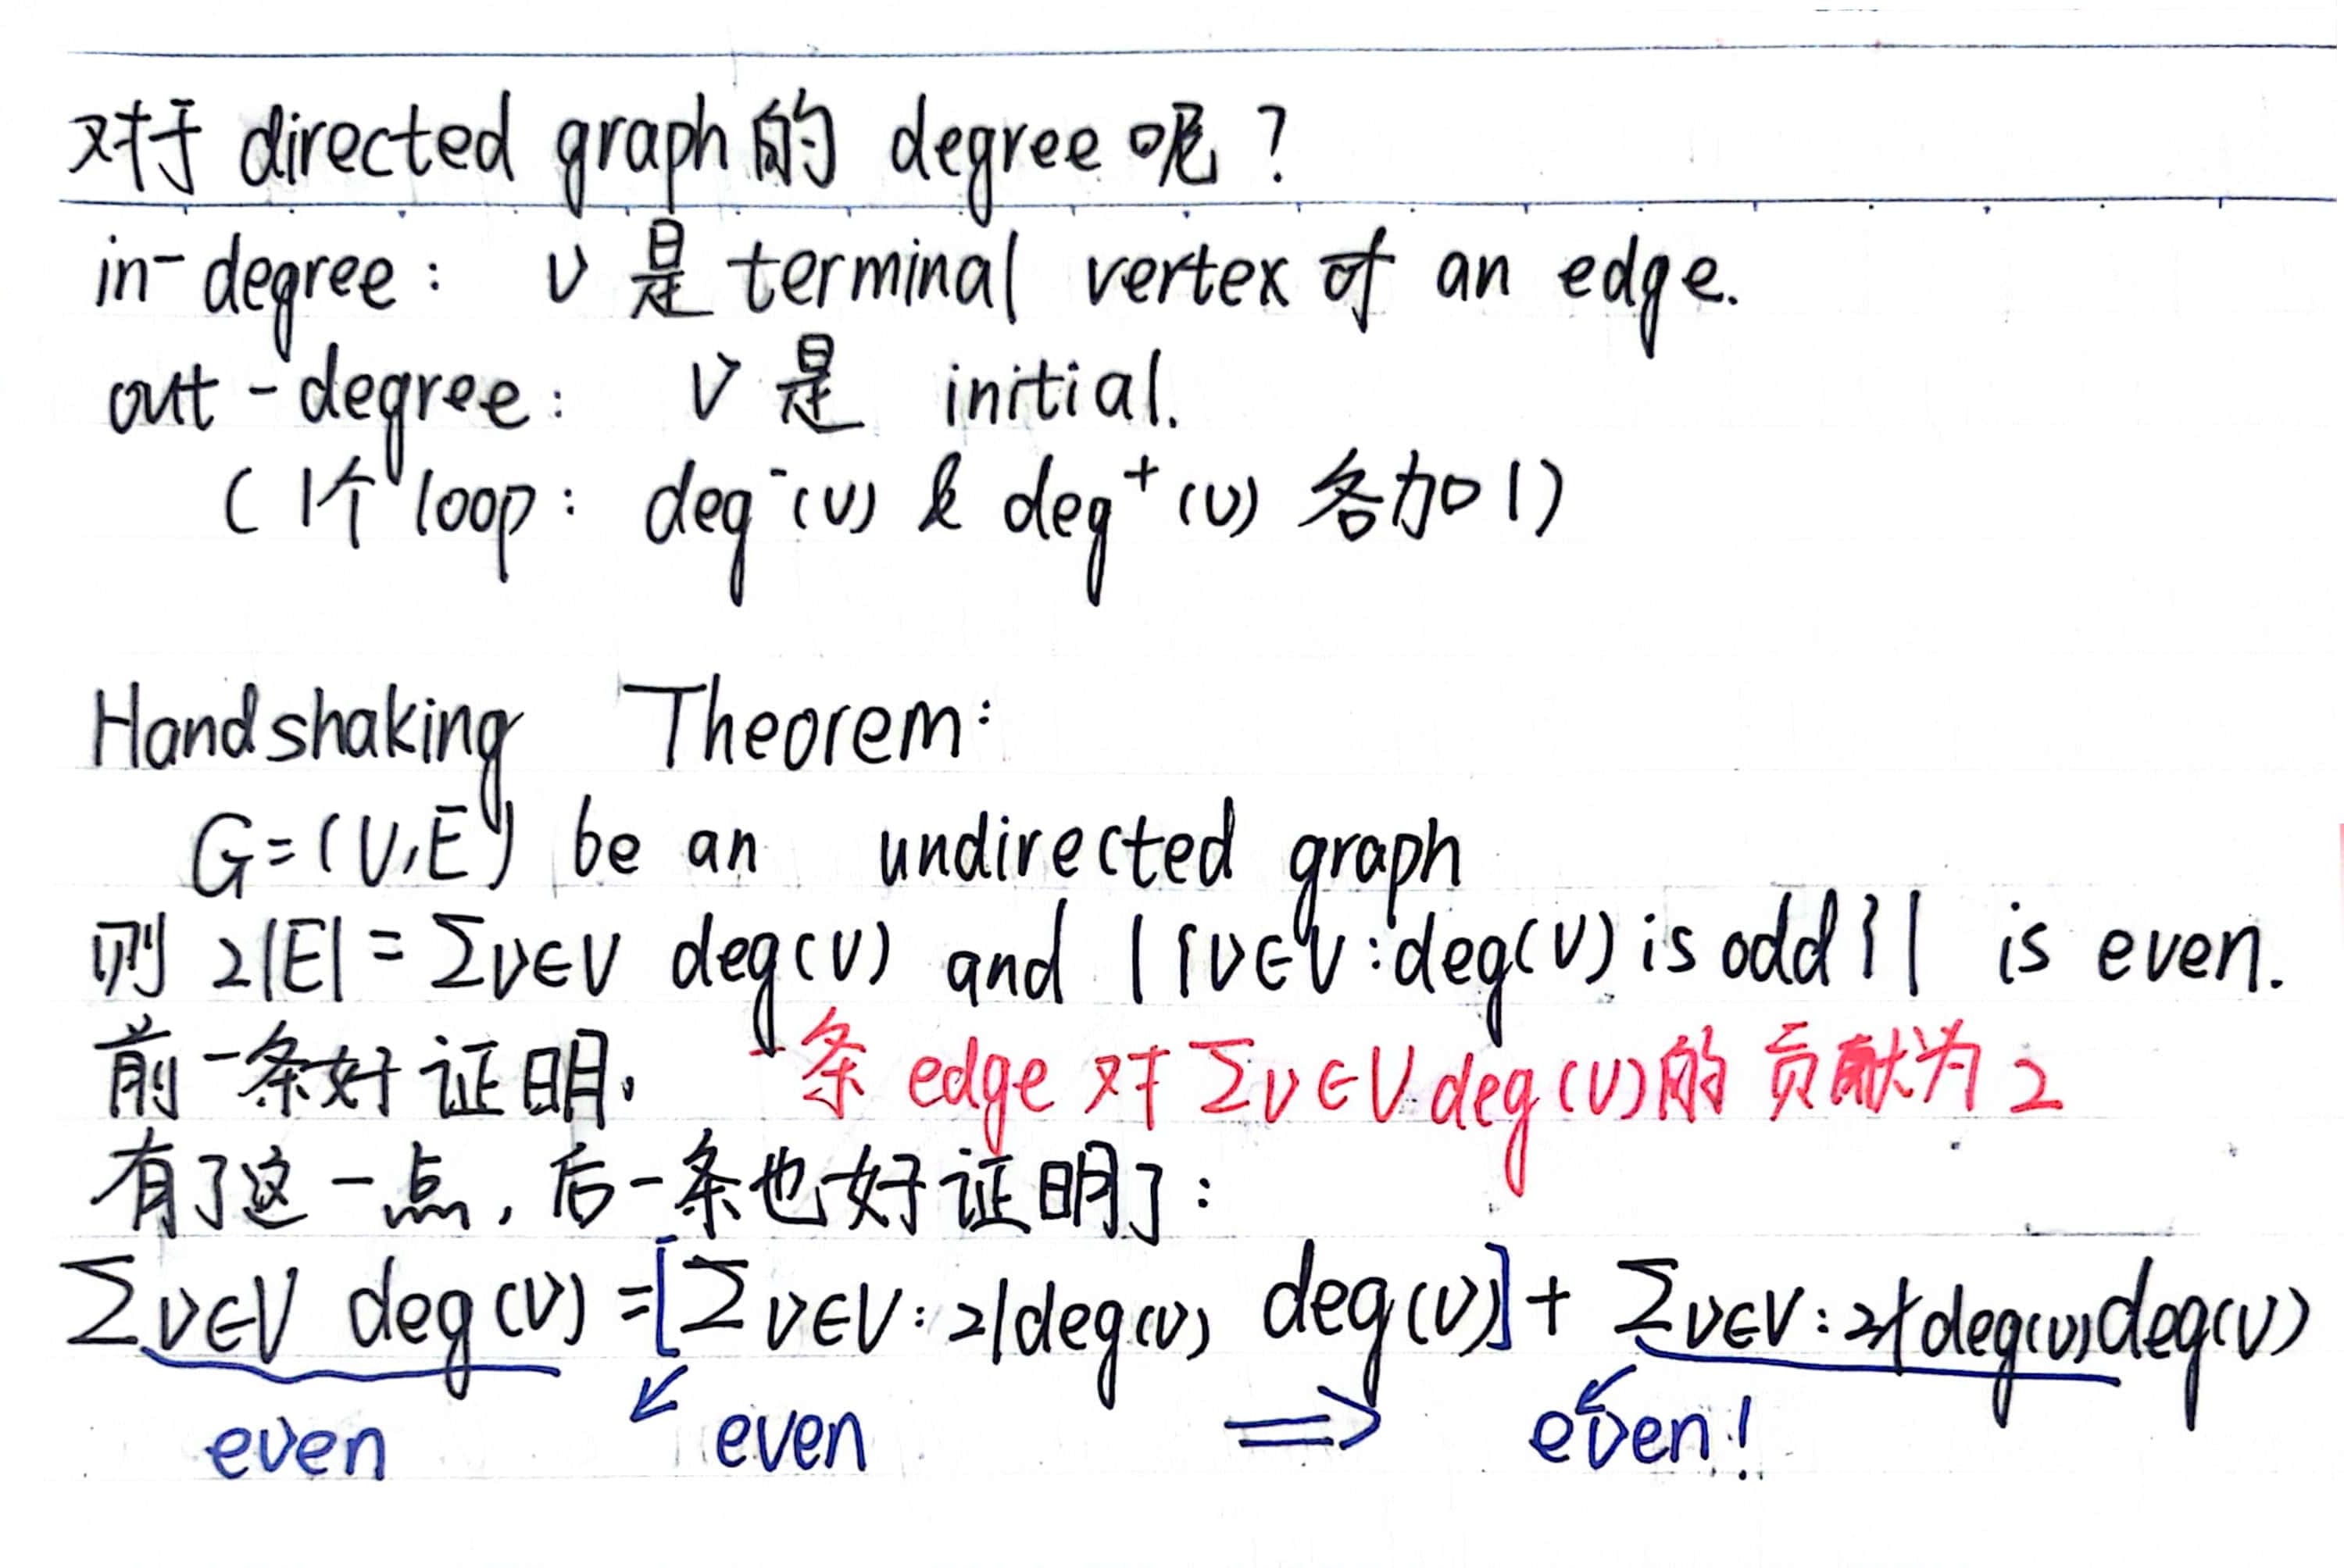 对于 directed graph 的 degree 呢？
in-degree： v 是 terminal vertex of an edge.
out-degree： v 是 initial.
（1个 loop： deg⁻(v) & deg⁺(v) 各加1）
Handshaking Theorem：
G=(V,E) be an undirected graph
则 2|E| = Σv∈V deg(v) and |{v∈V:deg(v) is odd}| is even.
前一条好证明。 一条 edge 对 Σv∈V deg(v)的 贡献为 2
有了这一点，后一条也好证明了：
Σv∈V deg(v) =[Σv∈V:2|deg(v) deg(v)]+ Σv∈V:2∤deg(v) deg(v)
even even ⟹ even!